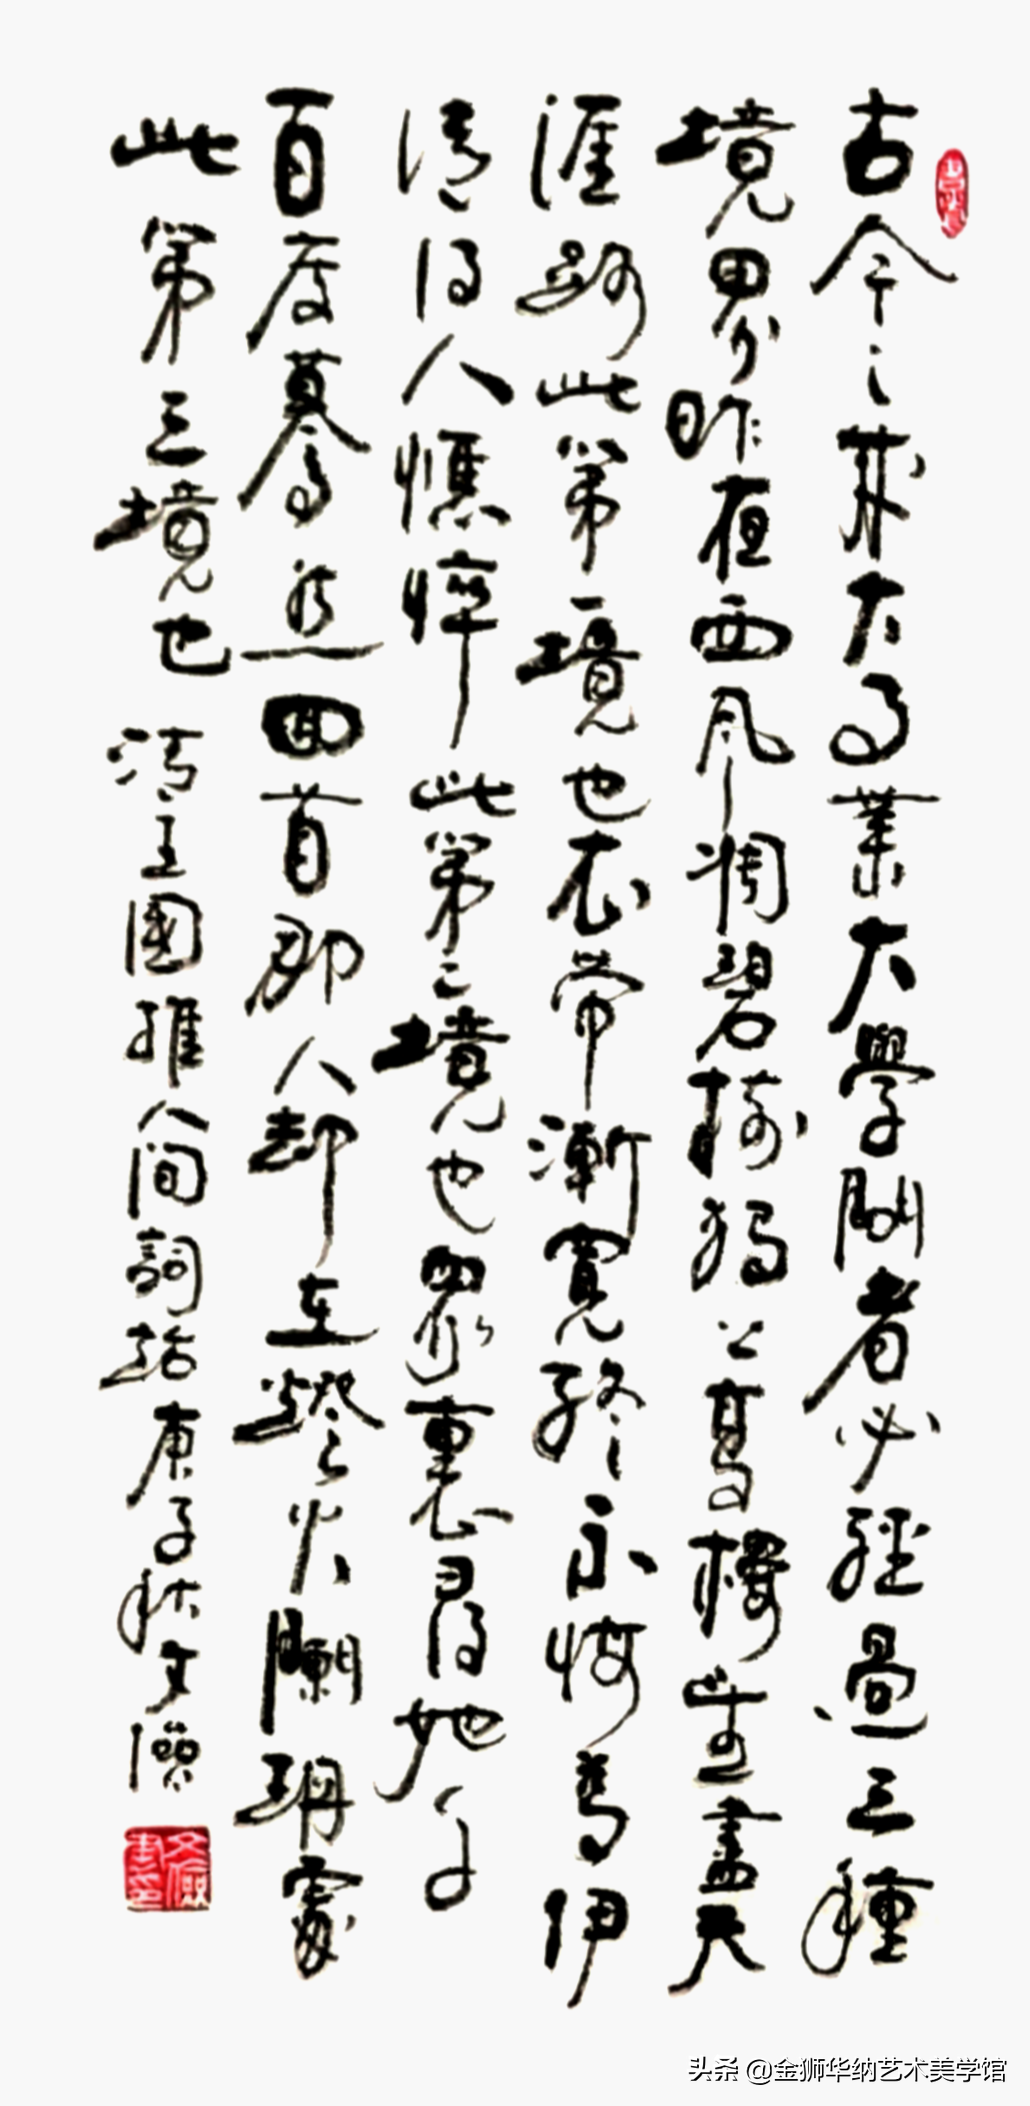 古今之成大事業大學問者必經過三種
境界昨夜西風凋碧樹獨上高樓望盡天
涯路此第一境也衣帶漸寬終不悔為伊
消得人憔悴此第二境也眾裏尋他千
百度驀然回首那人却在燈火闌珊處
此第三境也 清王國維人間詞話庚子秋文儉
头条 @金狮华纳艺术美学馆